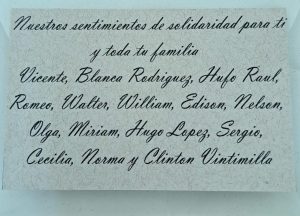 Nuestros sentimientos de solidaridad para ti
y toda tu familia
Vicente, Blanca Rodriguez, Hufo Raul,
Romeo, Walter, William, Edison, Nelson,
Olga, Miriam, Hugo Lopez, Sergio,
Cecilia, Norma y Clinton Vintimilla